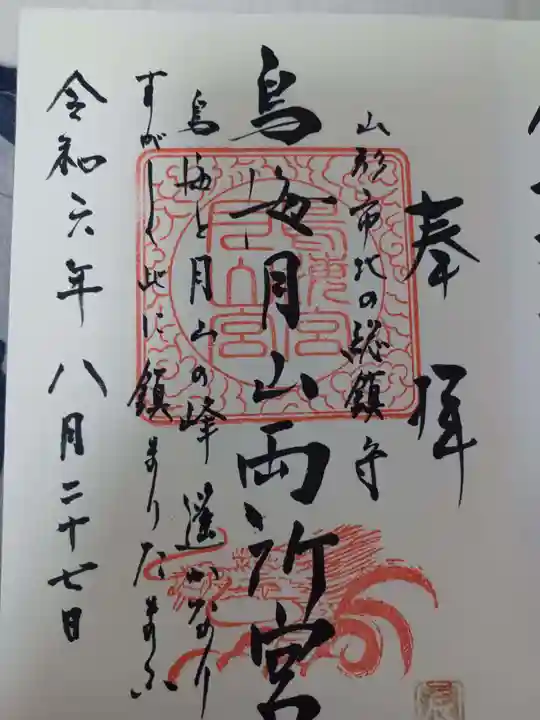 奉拝
山形市北の総鎮守
鳥海月山両所宮
鳥海と月山の峰遥かなり
すがしく此に鎮まりたまふ
令和六年八月二十七日